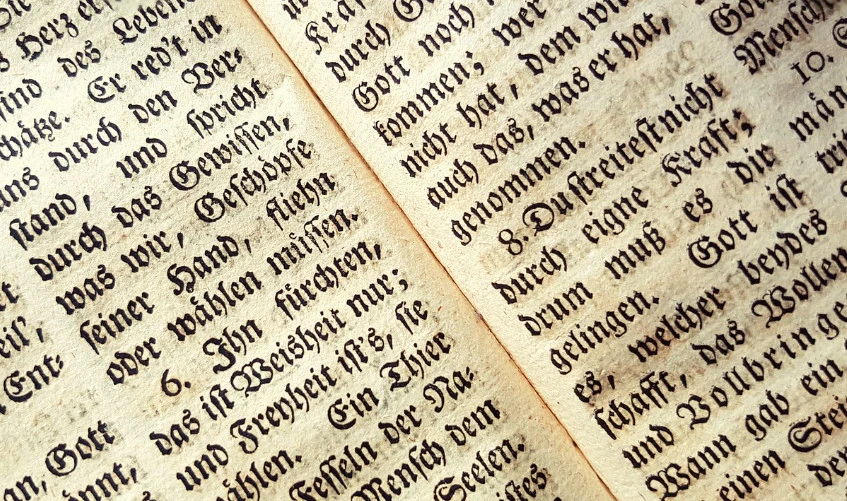 Herz
sind des Leben
chätze. Er red't in
uns durch den Ver-
stand, und spricht
durch das Gewissen,
was wir, Geschöpfe
seiner Hand, fliehn
oder wählen müssen.
6. Ihn fürchten,
das ist Weisheit nur;
und Freyheit ist's, sie
ählen. Ein Thier
Fesseln der Na-
Mensch dem
Seelen.
eil',
Ent-
an, Gott
önnt,
Kraf
durch G
Gott noch
kommen; wer
nicht hat, dem wir
auch das, was er hat,
genommen.
8. Du streitest nicht
durch eigne Kraft;
drum muß es dir
gelingen. Gott ist
es, welcher beydes
schafft, das Wollen
und Vollbringe
Wann gab ein
einen Stei
der
Gott
Mensch
10.
män